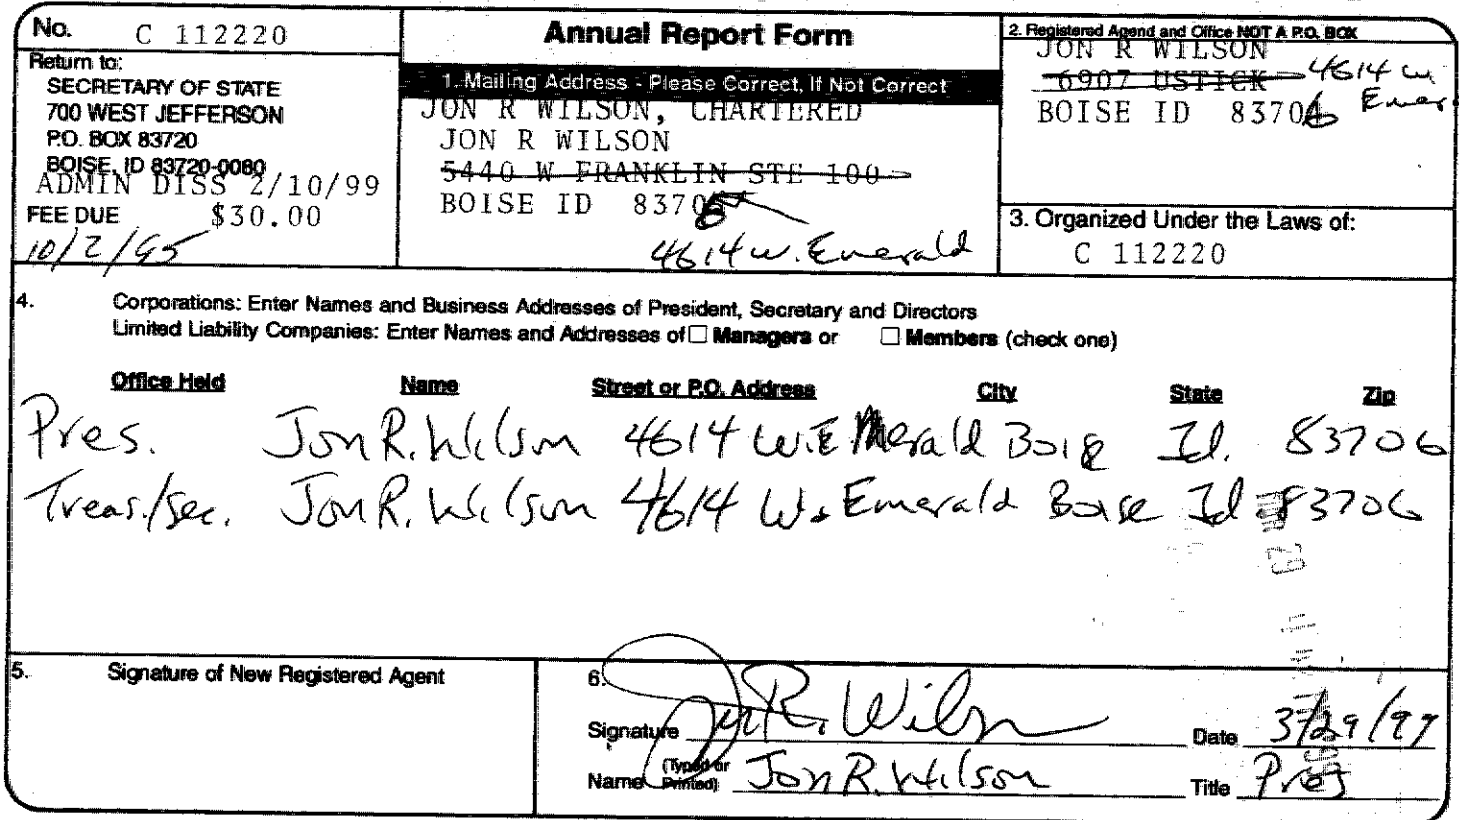 No. C 112220
Return to:
SECRETARY OF STATE
700 WEST JEFFERSON
P.O. BOX 83720
BOISE, ID 83720-0080
ADMIN DISS 2/10/99
FEE DUE $30.00
10/2/95
Annual Report Form
1. Mailing Address - Please Correct, If Not Correct
JON R WILSON, CHARTERED
JON R WILSON
5440 W FRANKLIN STE 100
BOISE ID 83706
4614 W. Emerald
2. Registered Agend and Office NOT A P.O. BOX
JON R WILSON
6907 USTICK 4614 W.
BOISE ID 83706 Emer
3. Organized Under the Laws of:
C 112220
4. Corporations: Enter Names and Business Addresses of President, Secretary and Directors
Limited Liability Companies: Enter Names and Addresses of □ Managers or □ Members (check one)
Office Held Name Street or P.O. Address City State Zip
Pres. Jon R. Wilson 4614 W. Emerald Boise Id. 83706
Treas./Sec. Jon R. Wilson 4614 W. Emerald Boise Id 83706
5. Signature of New Registered Agent
6.
Signature Jon R. Wilson Date 3/29/99
Name (Typed or Printed) Jon R. Wilson Title Pres